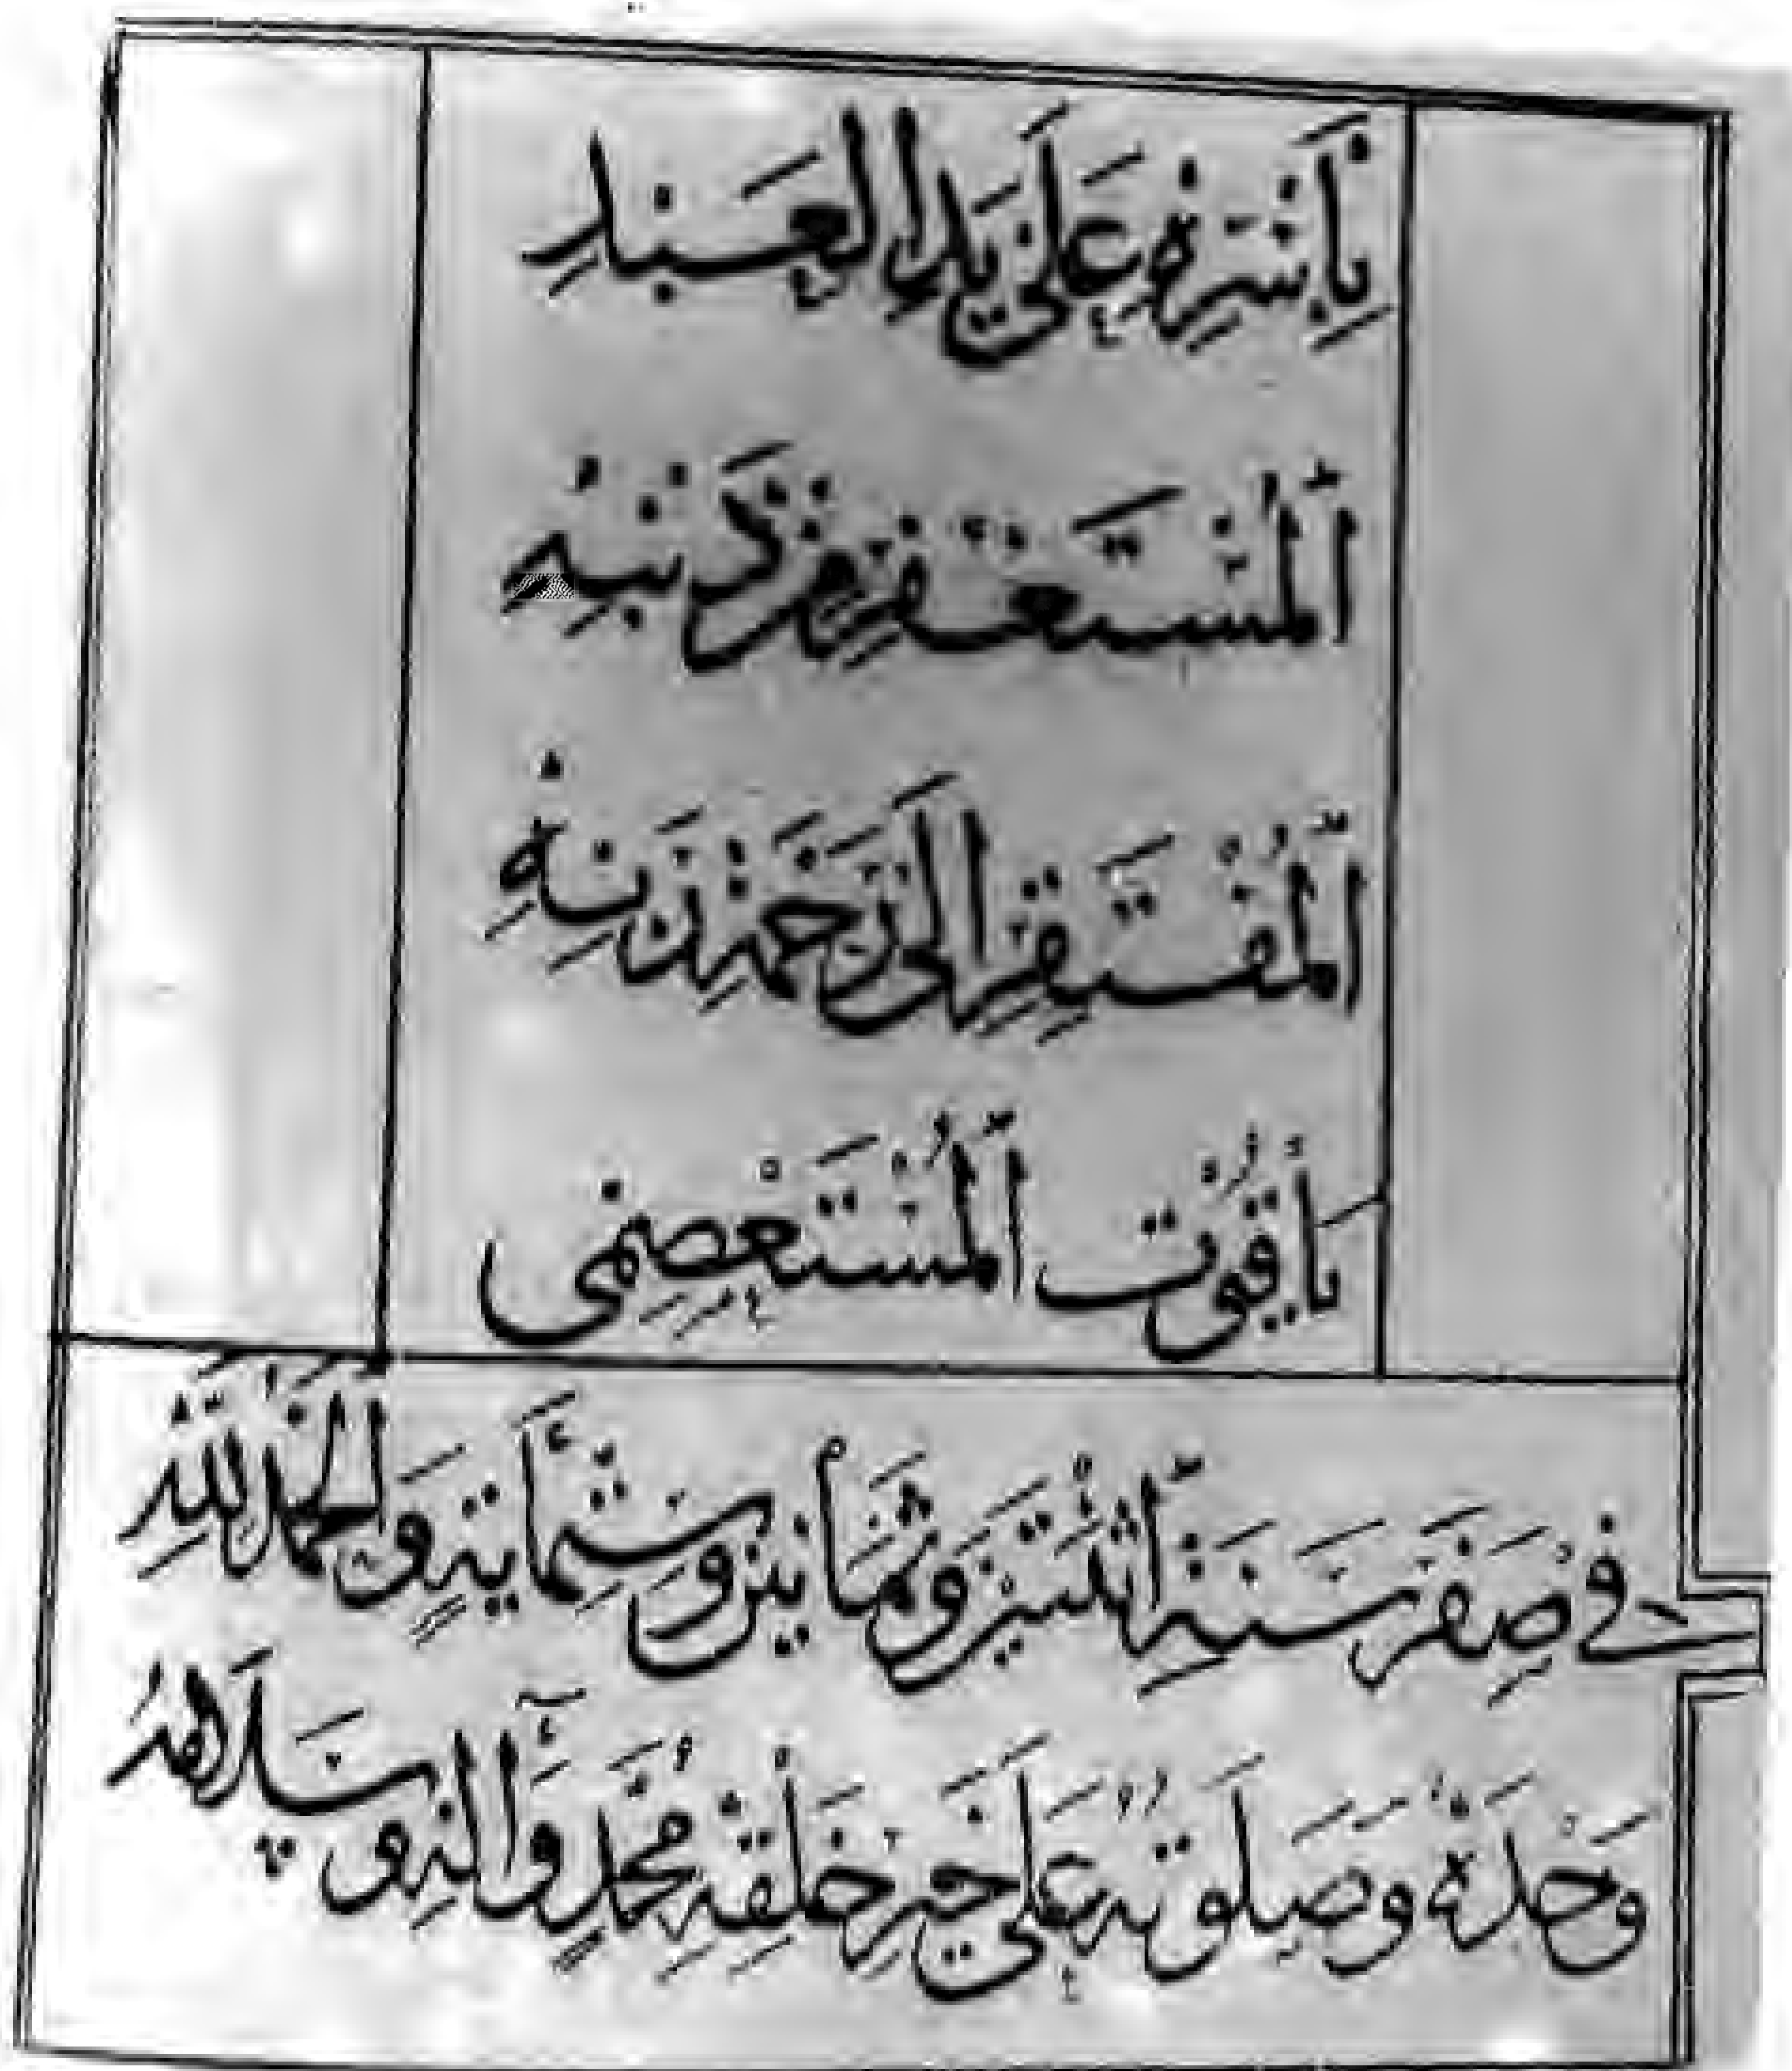 بِأَسْرِهِ عَلَى يَدِ الْعَبْدِ
الْمُسْتَغْفِرِ مِنْ ذَنْبِهِ
الْمُفْتَقِرِ إِلَى رَحْمَةِ رَبِّهِ
يَاقُوْت الْمُسْتَعْصِمِي
فِي صَفَر سَنَةِ اثْنَتَيْنِ وَثَمَانِينَ وَسِتِّمَائَةٍ وَالْحَمْدُ لِلَّهِ
وَحْدَهُ وَصَلَوتُهُ عَلَى خَيْرِ خَلْقِهِ مُحَمَّدٍ وَآلِهِ وَسَلَامُهُ